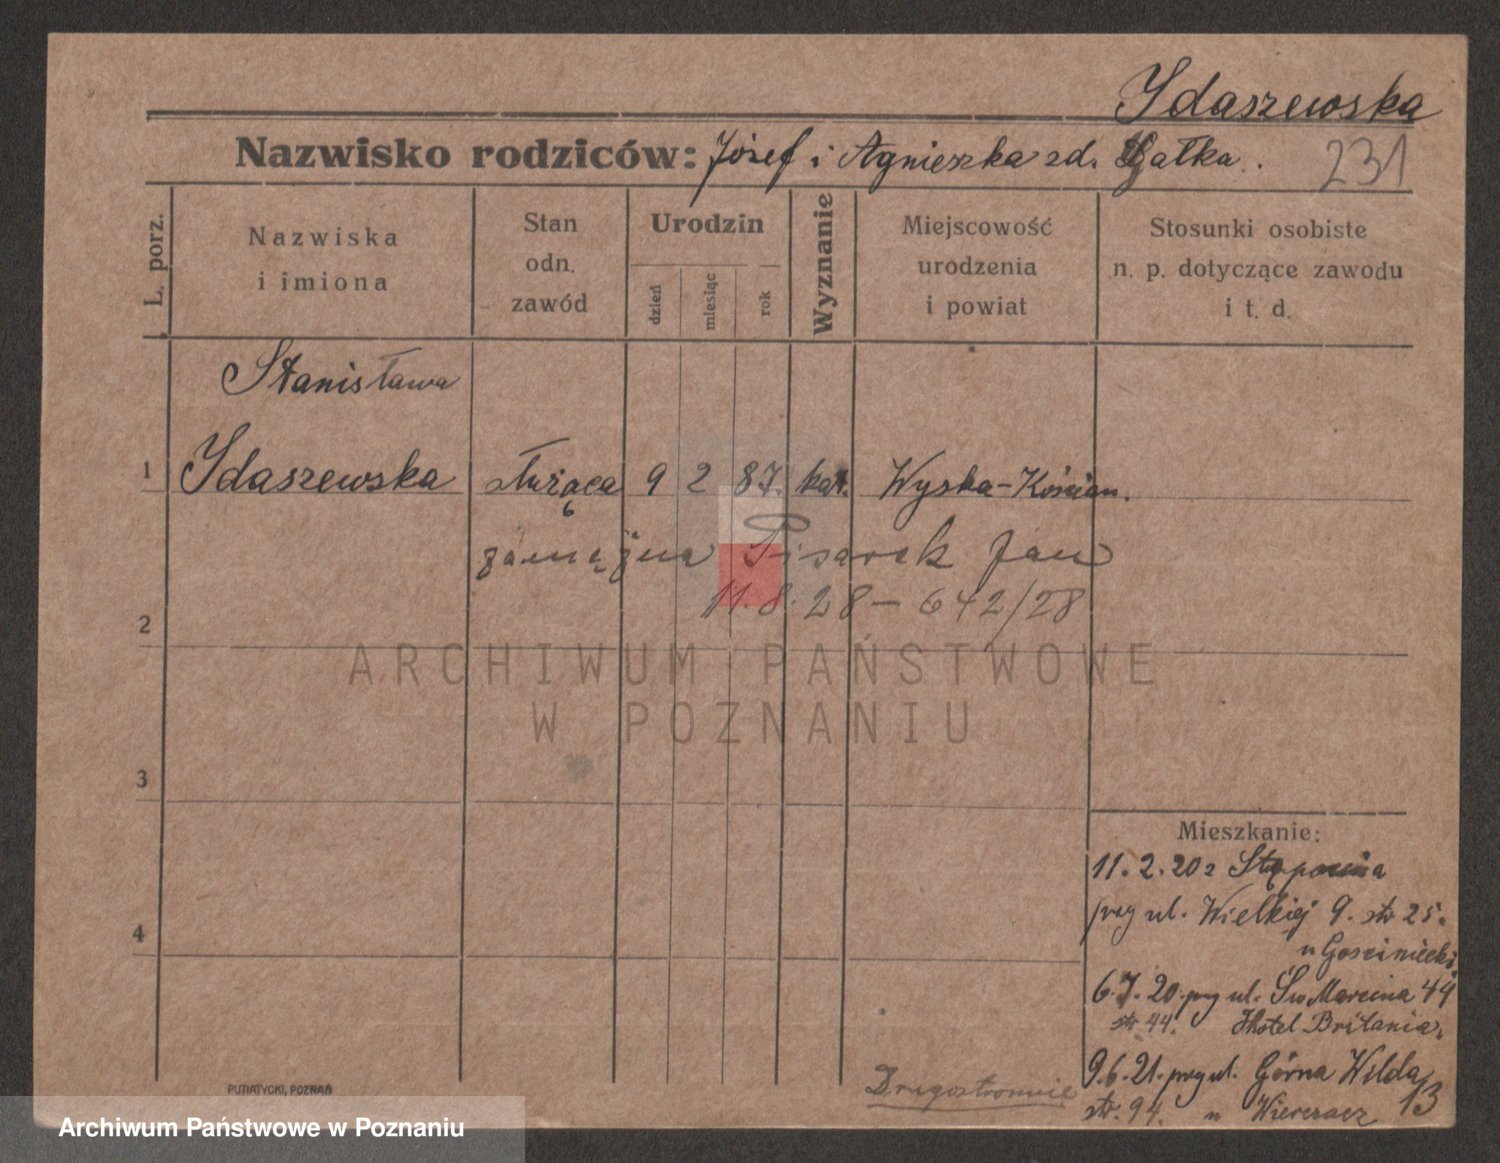 Idaszewska
Nazwisko rodziców: Józef i Agnieszka zd. Gałka. 231
L. porz.
Nazwiska
i imiona
Stan
odn.
zawód
Urodzin
dzień
miesiąc
rok
Wyznanie
Miejscowość
urodzenia
i powiat
Stosunki osobiste
n. p. dotyczące zawodu
i t. d.
Stanisława
1 Idaszewska służąca 9 2 87. kat. Wyska-Kościan.
zamężna Pisarek Jan
11.8.28 – 642/28
2
3
4
ARCHIWUM PAŃSTWOWE
W POZNANIU
Mieszkanie:
11.2.20 z
przy ul. Wielkiej 9. str 25.
u Gościniecki.
6.7.20. przy ul. Św Marcina 44
str. 44. Hotel Britania.
9.6.21. przy ul. Górna Wilda 13
str. 94. u
Drugostronnie
PUTIATYCKI, POZNAŃ
Archiwum Państwowe w Poznaniu